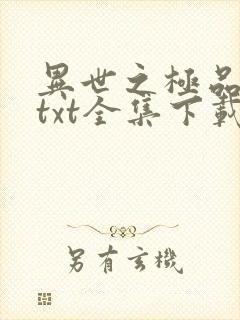 異世之極品
txt全集下載
另有玄機